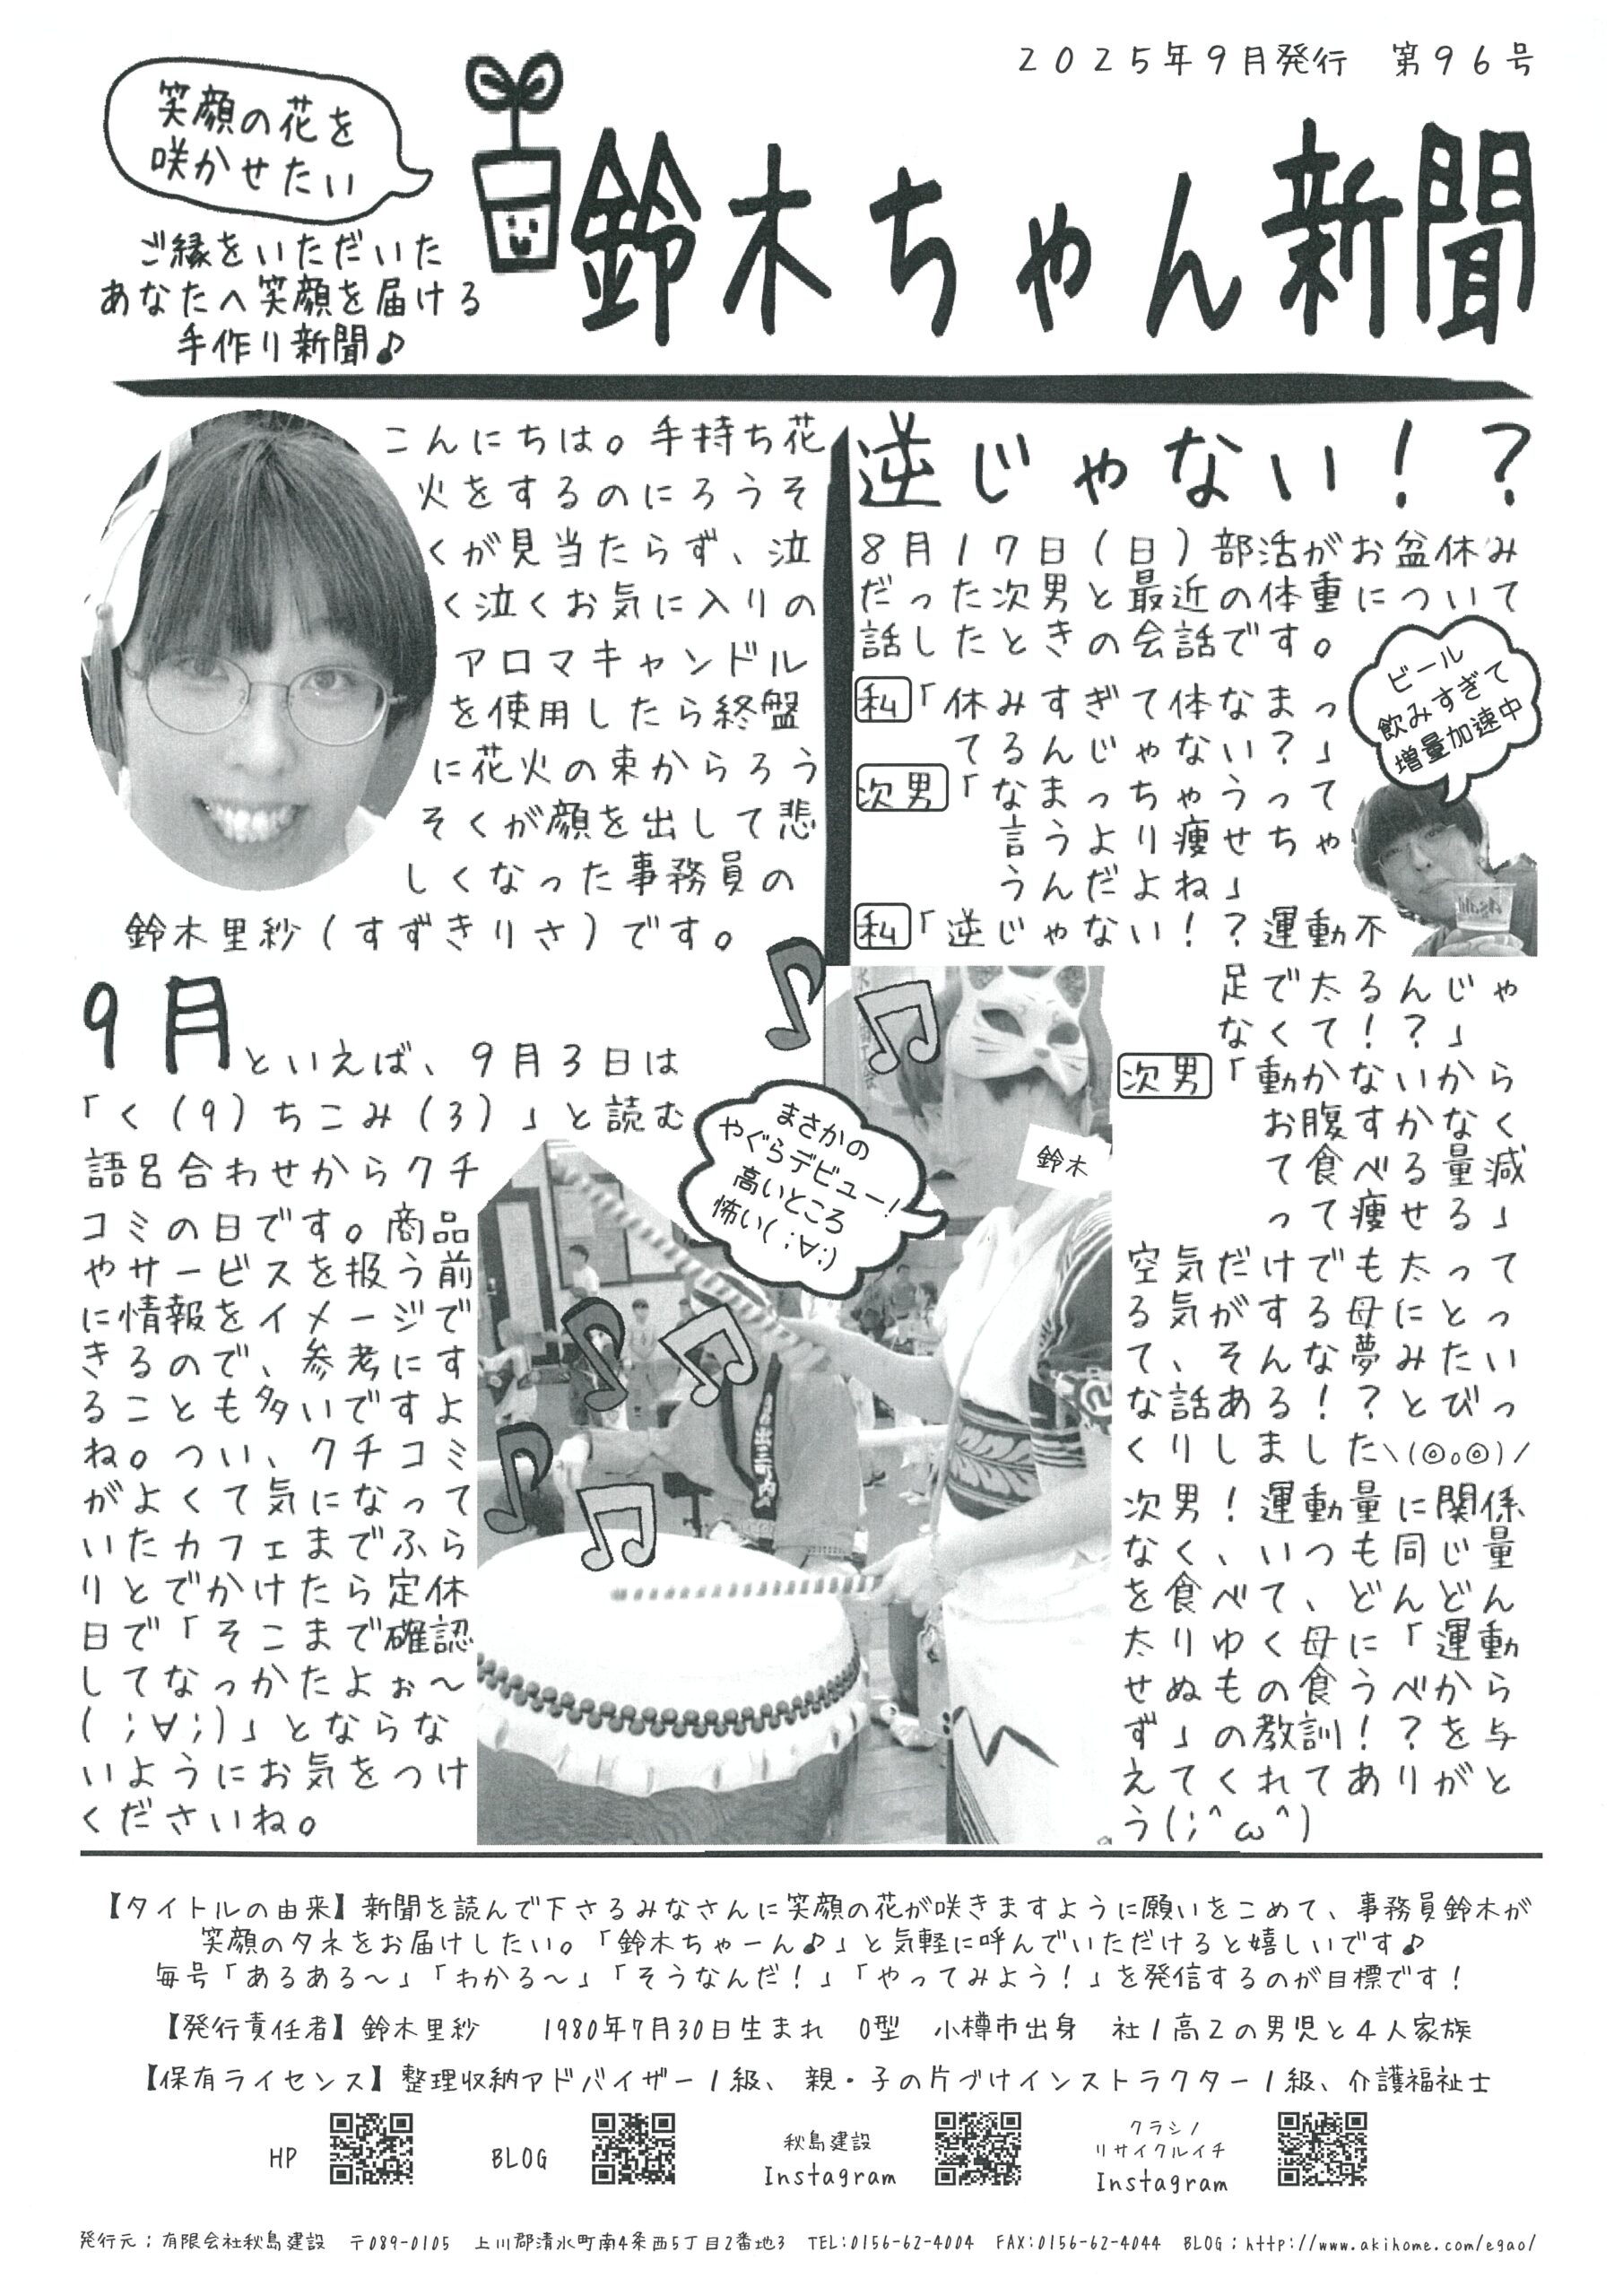 2025年9月発行 第96号
笑顔の花を
咲かせたい
ご縁をいただいた
あなたへ笑顔を届ける
手作り新聞♪
鈴木ちゃん新聞
こんにちは。手持ち花
火をするのにろうそ
くが見当たらず、泣
く泣くお気に入りの
アロマキャンドル
を使用したら終盤
に花火の束からろう
そくが顔を出して悲
しくなった事務員の
鈴木里紗(すずきりさ)です。
9月といえば、9月3日は
「く(9)ちこみ(3)」と読む
語呂合わせからクチ
コミの日です。商品
やサービスを扱う前
に情報をイメージで
きるので、参考にす
ることも多いですよ
ね。つい、クチコミ
がよくて気になって
いたカフェまでふら
りとでかけたら定休
日で「そこまで確認
してなっかたよぉ～
(;∀;)」とならな
いようにお気をつけ
くださいね。
まさかの
やぐらデビュー!
高いところ
怖い(;∀;)
鈴木
逆じゃない!?
8月17日(日)部活がお盆休み
だった次男と最近の体重について
話したときの会話です。
私「休みすぎて体なまっ
てるんじゃない?」
次男「なまっちゃうって
言うより痩せちゃ
うんだよね」
私「逆じゃない!?運動不
足で太るんじゃ
なくて!?」
次男「動かないから
お腹すかなく
て食べる量減
って痩せる」
ビール
飲みすぎて
増量加速中
空気だけでも太って
る気がする母にとっ
て、そんな夢みたい
な話ある!?とびっ
くりしました\(◎o◎)/
次男!運動量に関係
なく、いつも同じ量
を食べて、どんどん
太りゆく母に「運動
せぬもの食うべから
ず」の教訓!?を与
えてくれてありがと
う(;^ω^)
【タイトルの由来】新聞を読んで下さるみなさんに笑顔の花が咲きますように願いをこめて、事務員鈴木が
笑顔のタネをお届けしたい。「鈴木ちゃーん♪」と気軽に呼んでいただけると嬉しいです♪
毎号「あるある～」「わかる～」「そうなんだ!」「やってみよう!」を発信するのが目標です!
【発行責任者】鈴木里紗 1980年7月30日生まれ O型 小樽市出身 社1高2の男児と4人家族
【保有ライセンス】整理収納アドバイザー1級、親・子の片づけインストラクター1級、介護福祉士
HP
BLOG
秋島建設
Instagram
クラシノ
リサイクルイチ
Instagram
発行元;有限会社秋島建設 〒089-0105 上川郡清水町南4条西5丁目2番地3 TEL:0156-62-4004 FAX:0156-62-4044 BLOG;http://www.akihome.com/egao/